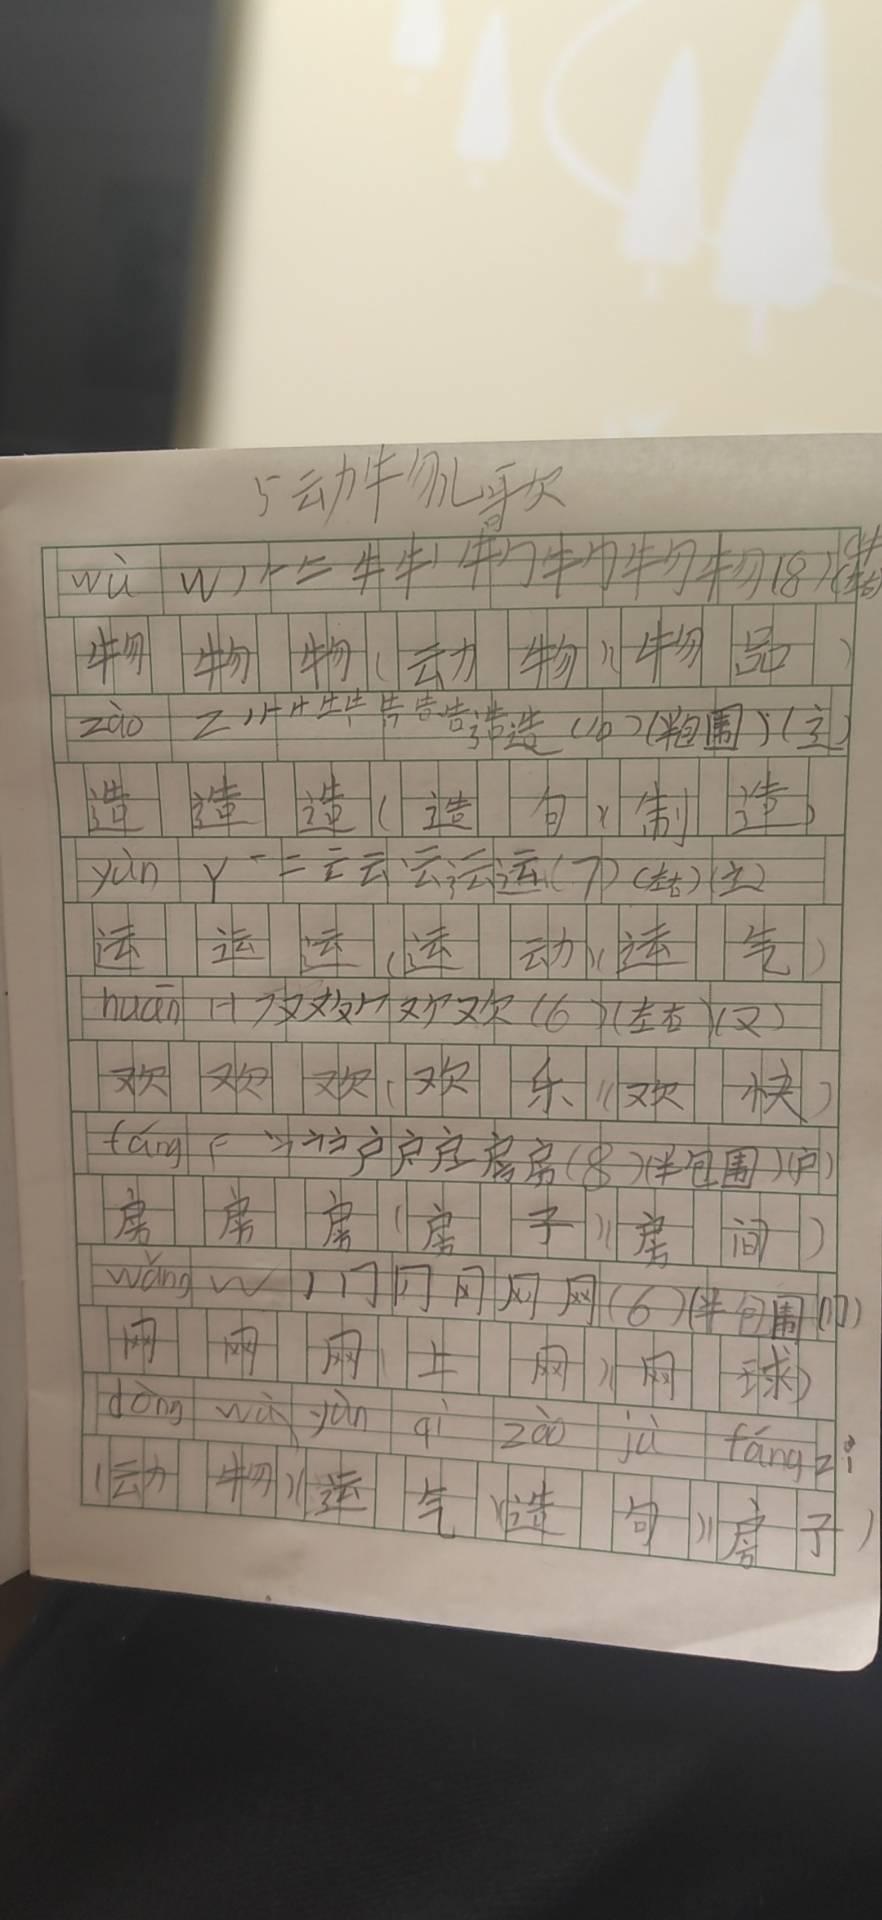 5动物儿歌
wù W 牛 物 (8)(左右)(牛)
物 物 物(动 物)(物 品)
zào Z 告 告 造 造 (10)(半包围)(辶)
造 造 造(造 句)(制 造)
yùn Y 一 二 云 云 运 运 (7)(左右)(辶)
运 运 运(运 动)(运 气)
huān H 又 欢 欢 (6)(左右)(又)
欢 欢 欢(欢 乐)(欢 快)
fáng F 户 房 房 (8)(半包围)(户)
房 房 房(房 子)(房 间)
wǎng W 丨 冂 网 网 (6)(半包围)(冂)
网 网 网(上 网)(网 球)
dòng wù yùn qì zào jù fáng zi
(动 物)(运 气)(造 句)(房 子)